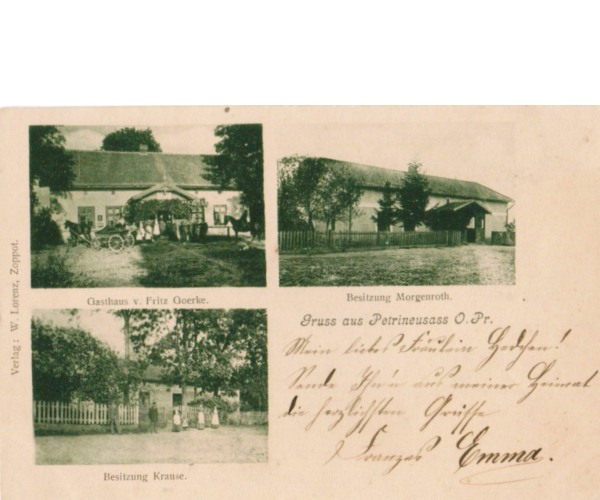 Verlag: W. Lorenz, Zoppot.
Gasthaus v. Fritz Goerke.
Besitzung Morgenroth.
Gruss aus Petrineusass O. Pr.
Mein liebes Fräulein Hedchen!
Sende Ihn'n aus meiner Heimat
die herzlichsten Grüsse
Emma.
Besitzung Krause.